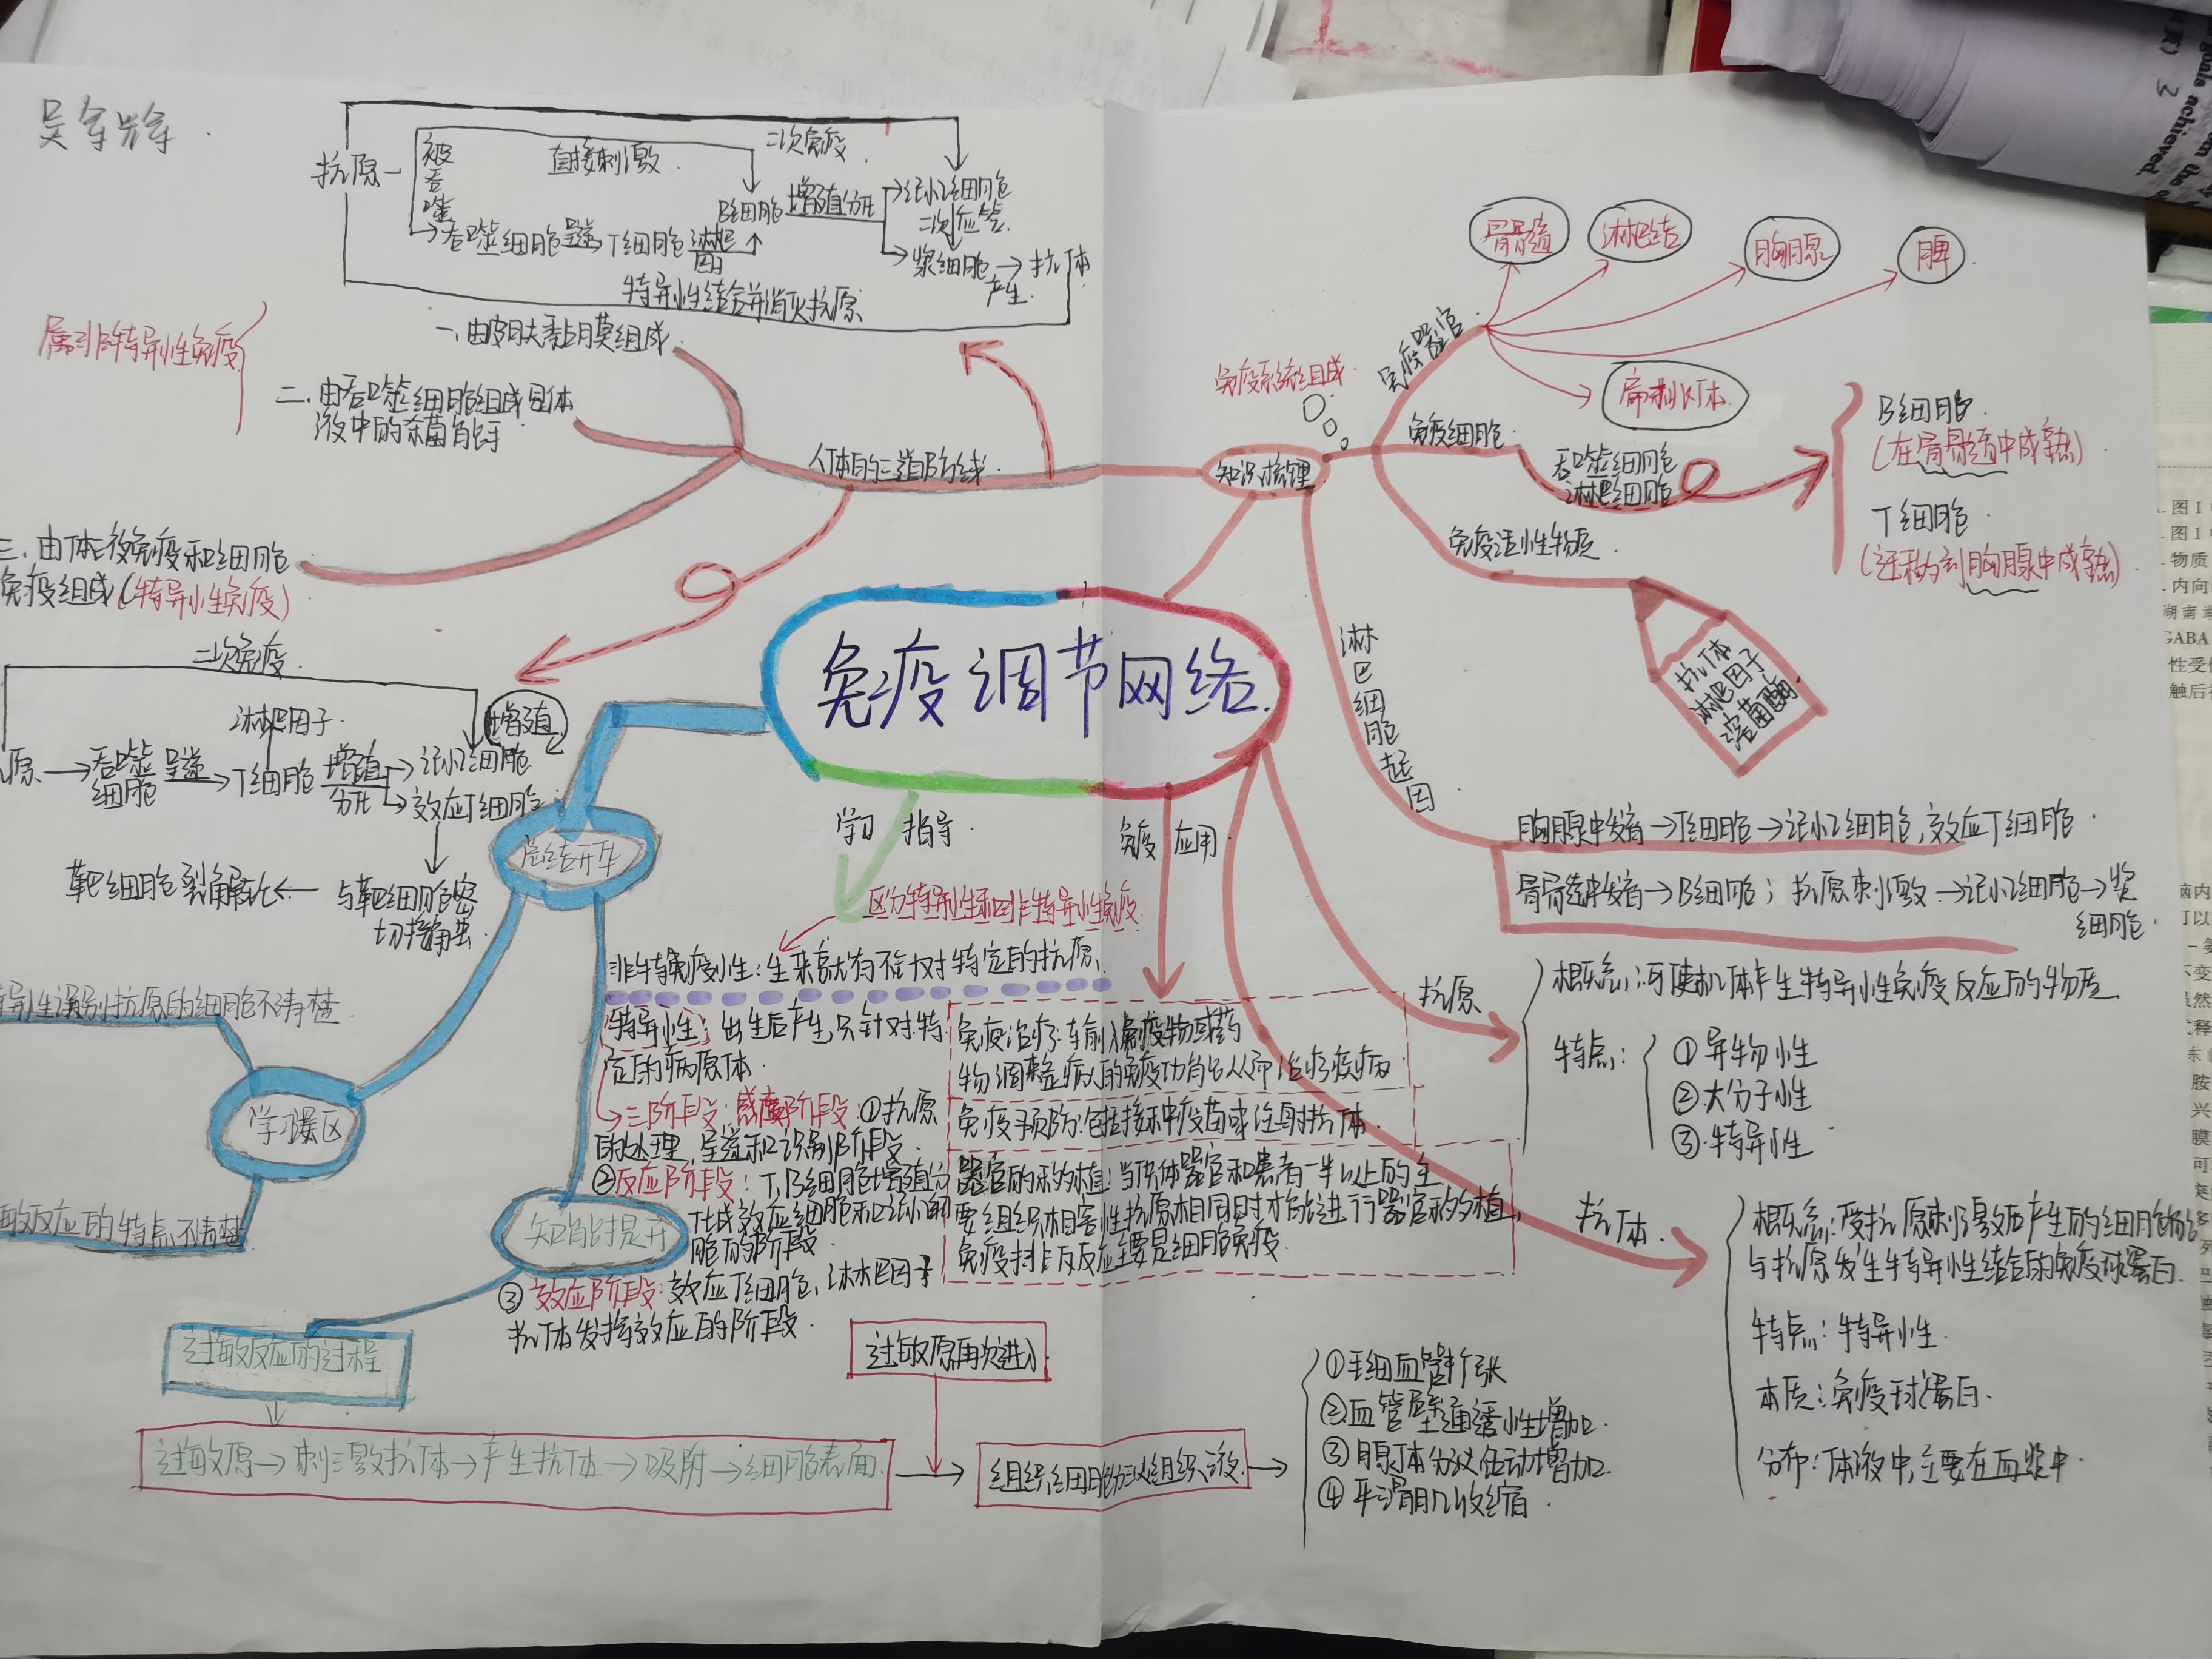 抗原
被吞噬
直接刺激
二次免疫
B细胞 增殖分化
记忆细胞
二次应答
吞噬细胞 呈递 T细胞 淋巴因子
浆细胞 → 抗体
产生
特异性结合并消灭抗原
属非特异性免疫
一.由皮肤黏膜组成
二.由吞噬细胞组成 体
液中的杀菌
三.由体液免疫和细胞
免疫组成(特异性免疫)
人体的三道防线
知识梳理
免疫系统组成
免疫器官
骨髓
淋巴结
胸腺
脾
扁桃体
免疫细胞
吞噬细胞
淋巴细胞
B细胞
(在骨髓中成熟)
T细胞
(迁移到胸腺中成熟)
免疫活性物质
抗体
淋巴因子
溶菌酶
免疫调节网络
淋巴细胞起因
胸腺中发育→T细胞→记忆细胞,效应T细胞
骨髓中发育→B细胞;抗原刺激→记忆细胞→浆
细胞
二次免疫
淋巴因子
增殖
原→吞噬细胞 呈递 T细胞 增殖分化
记忆细胞
效应T细胞
与靶细胞密
切接触
靶细胞裂解
学习指导
免疫应用
区分特异性和非特异性免疫
生来就有不针对特定的抗原
特异性:出生后产生,只针对特
定的病原体
三阶段:感应阶段:①抗原
的处理,呈递和识别阶段
②反应阶段:T、B细胞增殖分
化成效应细胞和记忆细
胞的阶段
③效应阶段:效应T细胞,淋巴因子
抗体发挥效应的阶段.
免疫治疗:车前入免疫物或药
物调整病人的免疫功能从而治疗疾病
免疫预防:包括接种疫苗或注射抗体.
器官的移植:当供体器官和患者一半以上的主
要组织相容性抗原相同时才能进行器官移植,
免疫排斥反应主要是细胞免疫.
异性识别抗原的细胞不清楚
学习误区
敏反应的特点不清楚
知能提升
过敏反应的过程
过敏原→刺激抗体→产生抗体→吸附→细胞表面
过敏原再次进入
①毛细血管扩张
②血管壁通透性增加.
③腺体分泌活动增加.
④平滑肌收缩
抗原
概念:可使机体产生特异性免疫反应的物质
特点:
①异物性
②大分子性
③特异性
抗体
概念:受抗原刺激后产生的细胞
与抗原发生特异性结合的免疫球蛋白.
特点:特异性.
本质:免疫球蛋白.
分布:体液中,主要在血浆中.